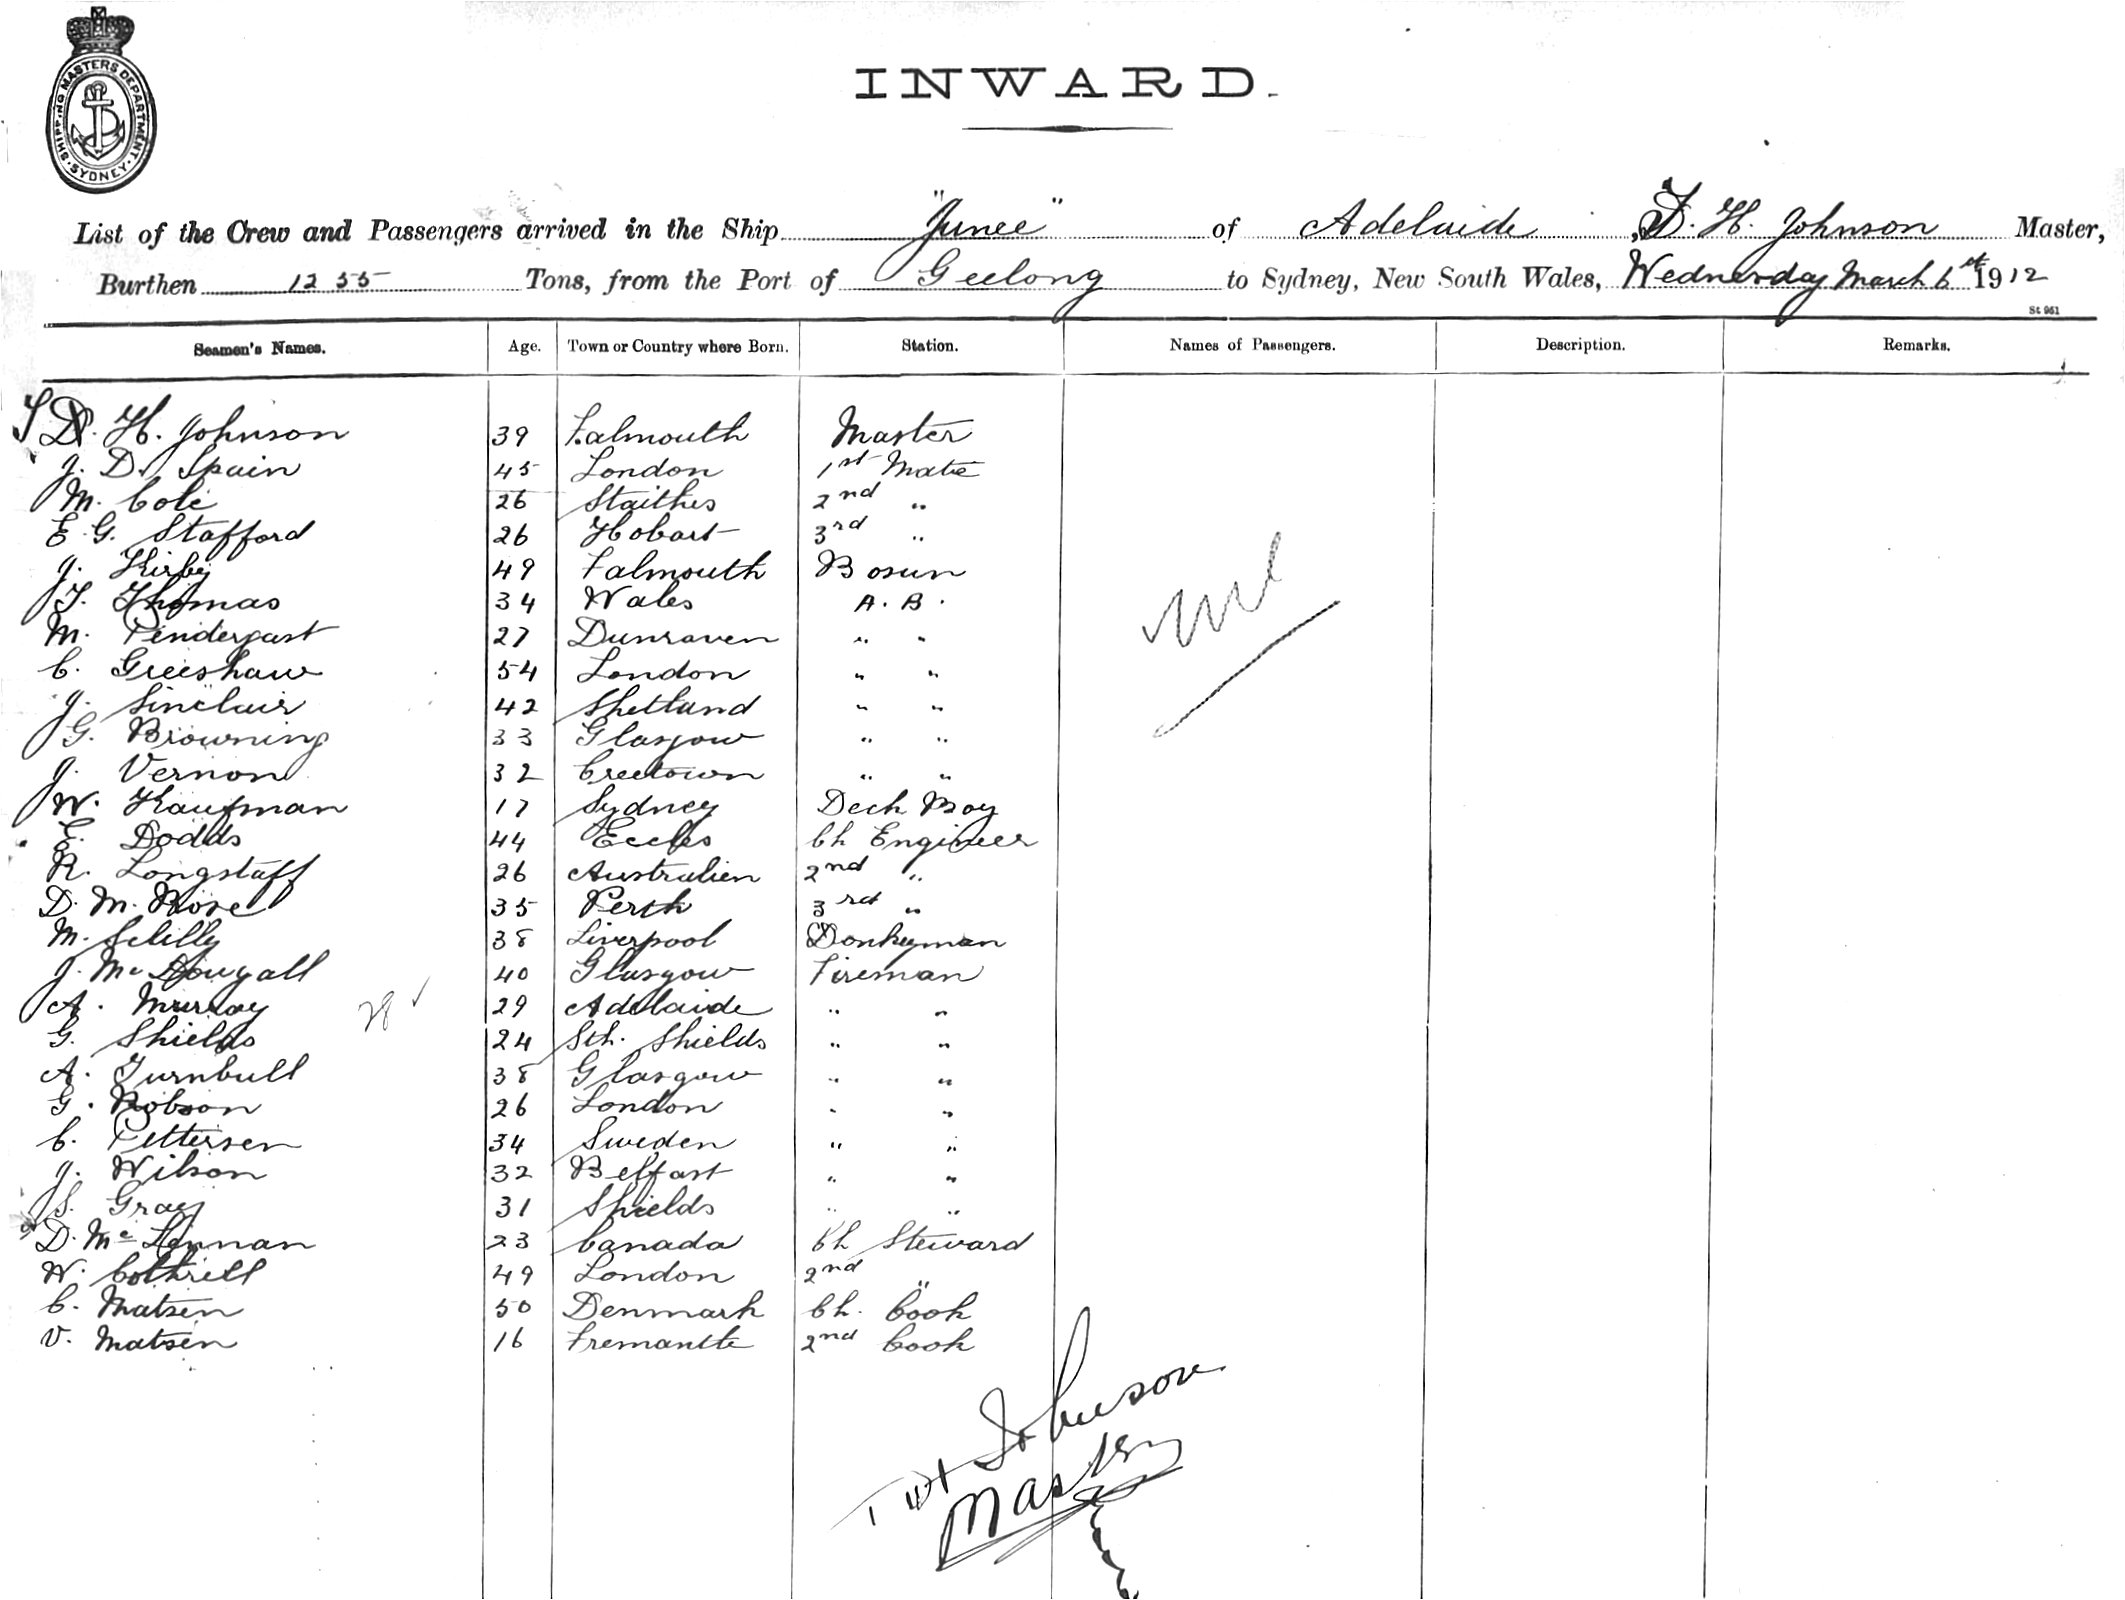 SHIPPING MASTERS DEPARTMENT · SYDNEY ·
INWARD.
List of the Crew and Passengers arrived in the Ship "Junee" of Adelaide, T. H. Johnson Master,
Burthen 1255 Tons, from the Port of Geelong to Sydney, New South Wales, Wednesday March 6st 1912
St 961
Seamen's Names. Age. Town or Country where Born. Station. Names of Passengers. Description. Remarks.
T H. Johnson 39 Falmouth Master
J. D. Spain 45 London 1st Mate
M. Cole 26 Staithes 2nd "
E. G. Stafford 26 Hobart 3rd "
J. Kirby 49 Falmouth Bosun
T. Thomas 34 Wales A. B.
M. Pendergast 27 Dunraven " "
C. Greeshaw 54 London " "
J. Sinclair 42 Shetland " "
G. Browning 33 Glasgow " "
J. Vernon 32 Creetown " "
W. Kaufman 17 Sydney Deck Boy
E. Dodds 44 Eccles Ch Engineer
R. Longstaff 26 Australian 2nd "
D. M. Rose 35 Perth 3rd "
M. 38 Liverpool Donkeyman
J. Mc Dougall 40 Glasgow Fireman
A. Murray 29 Adelaide " "
28 ✓
G. Shields 24 Sth. Shields " "
A. Turnbull 38 Glasgow " "
G. Robson 26 London " "
C. Pettersen 34 Sweden " "
J. Wilson 32 Belfast " "
S. Gray 31 Shields " "
D. Mc Lennan 23 Canada Ch Steward
W. Cothrell 49 London 2nd "
C. Matsen 50 Denmark Ch. Cook
V. Matsen 16 Fremantle 2nd Cook
nil
T H Johnson
Master